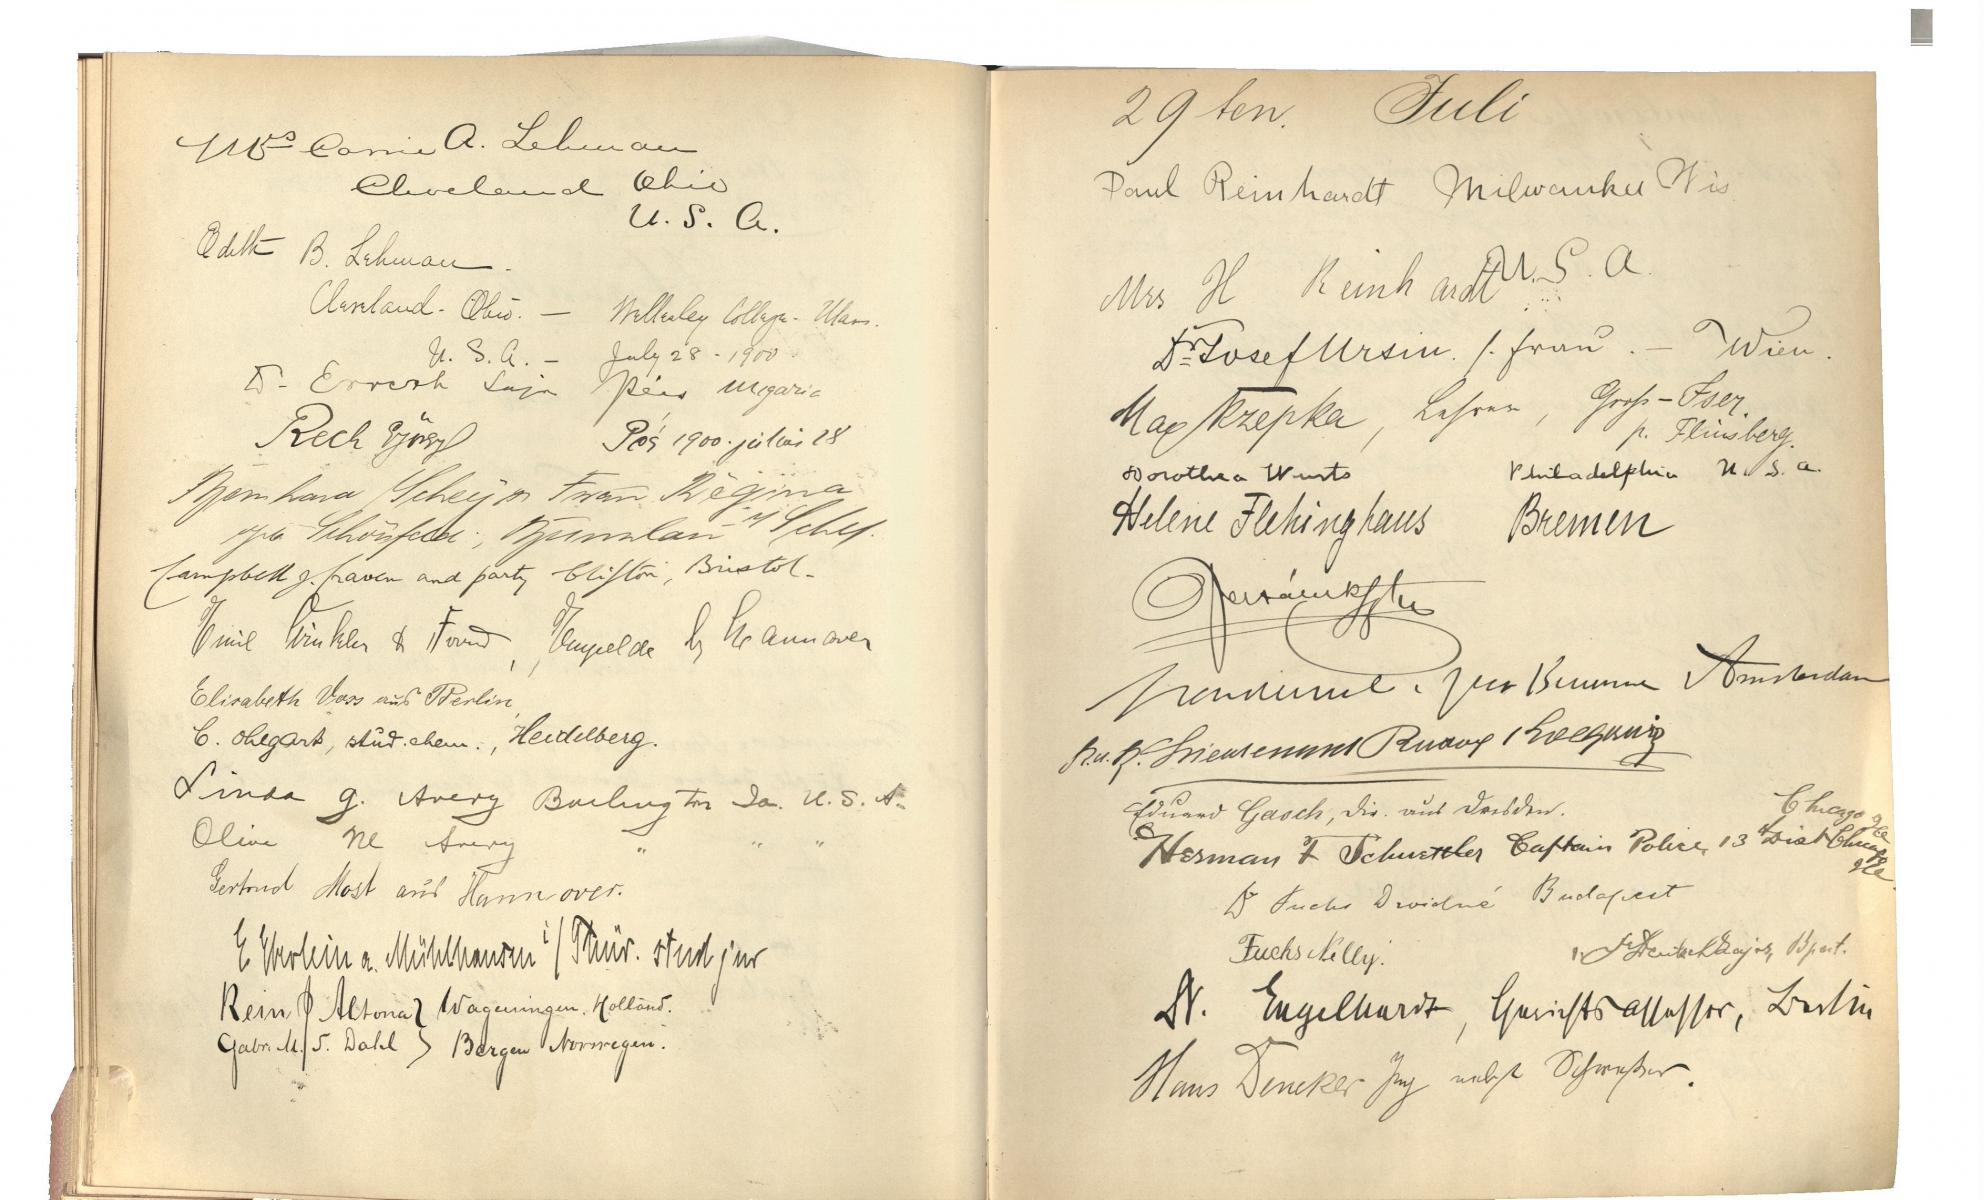 Mrs Carrie A. Lehman
Cleveland Ohio
U. S. A.
Edith B. Lehman.
Cleveland. Ohio. — Wellesley College. Mass.
U. S. A. — July 28 - 1900
Dr Lajo Pécs Ungaria
Rech György Pécs 1900. július 28
Frau Regina
Campbell J. Craven and party Clifton, Bristol.
Emil Winkler & Hannover
Elisabeth Voss aus Berlin
C. Ohlgart, stud. chem., Heidelberg.
Linda G. Avery Burlington Ia. U. S. A.
Olive M Avery " " "
Gertrud Most aus Hannover.
E Eberlein a. Mühlhausen i/Thür. stud jur
Rein J Altona } Wageningen. Holland.
Gabr. M. S. Dahl } Bergen Norwegen.
29ten. Juli
Paul Reinhardt Milwaukee Wis
U. S. A.
Mrs H Reinhardt
Dr. Josef Ursin. s. Frau. — Wien.
Max Krzepka, Lehrer, Gross-Iser.
p. Flinsberg.
Dorothea Wurts Philadelphia U. S. A.
Helene Flehinghaus Bremen
Amsterdam
K. u. K. Lieutenant
Eduard Gasch, Dir. aus Dresden.
Chicago Ills
Herman F Schuettler Captain Police 13 Dist Chicago
Ills
Dr Fuchs Dávidné Budapest
Fuchs Nelly. Bpest.
Dr. Engelhardt, Gerichtsassessor, Berlin
Hans Dencker Ing nebst Schwester.